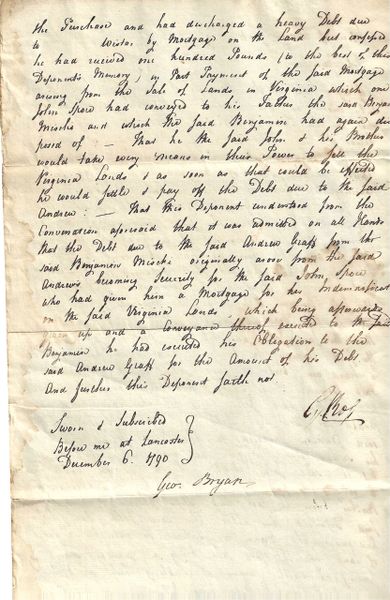 the Purchase and had discharged a heavy Debt due
to Wistar by Mortgage on the Land but confessed
he had received one hundred Pounds (to the best of this
Deponents Memory) in Part Payment of the said Mortgage
arising from the Sale of Lands in Virginia which one
John Spore had conveyed to his Father the said Benjamin
and which the said Benjamin had again dis
posed of That he the said John & his Brother
would take every means in their Power to sell the
Virginia Lands & as soon as that could be effected
he would settle & pay off the Debt due to the said
Andrew : — That this Deponent understood from the
Conversation aforesaid that it was admitted on all Hands
that the Debt due to the said Andrew Graff from the
said Benjamin originally arose from the said
Andrews becoming Security for the said John Spore
who had given him a Mortgage for his Indemnification
on the said Virginia Lands which being afterwards
given up and a conveyance thereof executed to the said
Benjamin he had executed his Obligation to the
said Andrew Graff for the Amount of his Debt
And further this Deponent saith not
Sworn & Subscribed
Before me at Lancaster
December 6. 1790
Geo. Bryan